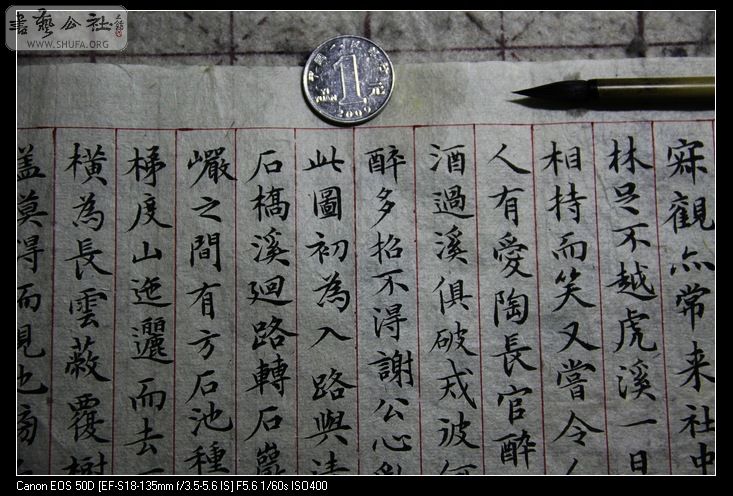 書藝公社
WWW.SHUFA.ORG
中国人民银行
1
元
YI YUAN
2009
寂觀亦常来社中
林足不越虎溪一日
相持而笑又嘗令人
人有愛陶長官醉
酒過溪俱破戒彼何
醉多招不得謝公心亂
此圖初為入路與清
石橋溪廻路轉石巖
巖之間有方石池種
梯度山迤邐而去
橫為長雲蔽覆樹
盖莫得而見也
Canon EOS 50D [EF-S18-135mm f/3.5-5.6 IS] F5.6 1/60s ISO400